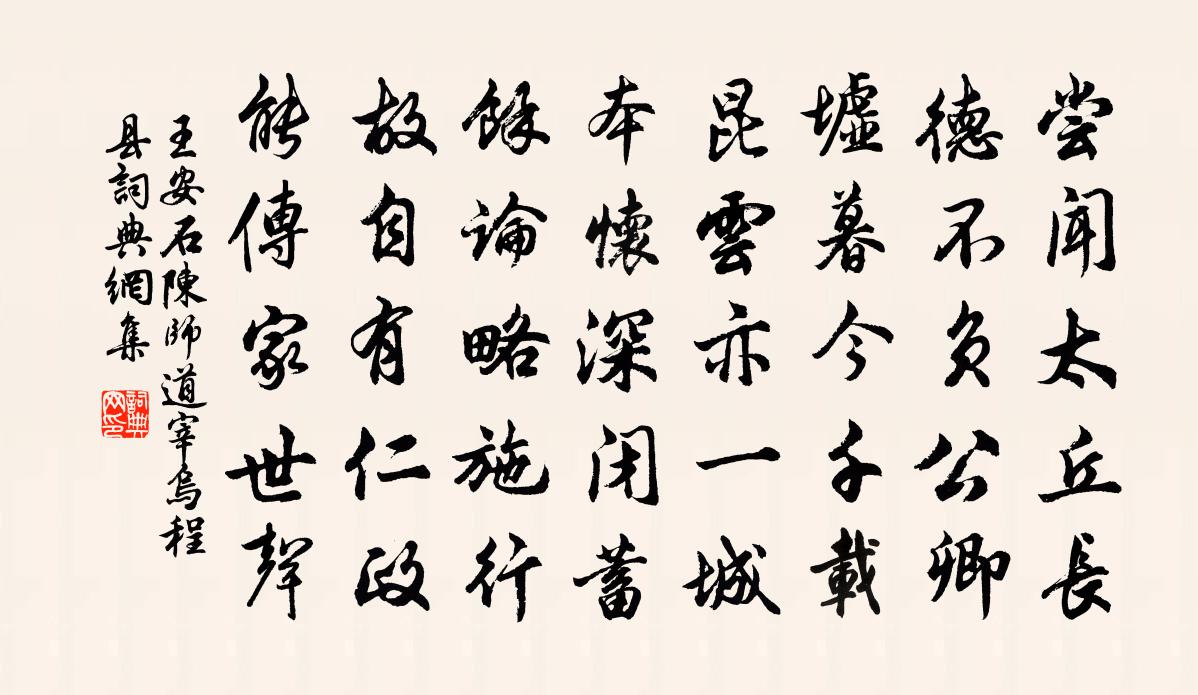 尝闻太丘長
德不负公卿
墟暮今千載
昆雲亦一城
本懷深闭蓄
餘論略施行
故自有仁政
能傳家世聲
王安石陳師道宰烏程
县詞典網集
詞典
网印